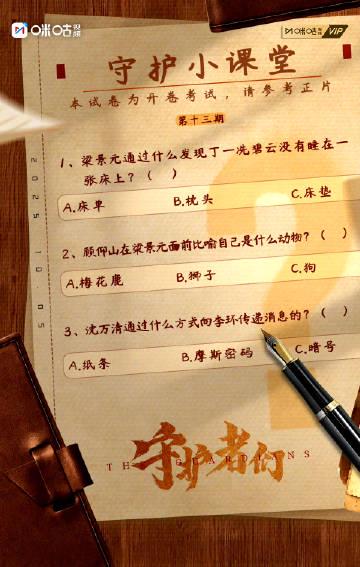 咪咕视频
咪咕视频 VIP
守护小课堂
本试卷为开卷考试，请参考正片
第十三期
2025 10.05
1、梁景元通过什么发现丁一、冼碧云没有睡在一
张床上？（ ）
A.床单 B.枕头 C.床垫
2、顾仰山在梁景元面前比喻自己是什么动物？（ ）
A.梅花鹿 B.狮子 C.狗
3、沈万清通过什么方式向李环传递消息的？（ ）
A.纸条 B.摩斯密码 C.暗号
守护者们
THE GUARDIANS